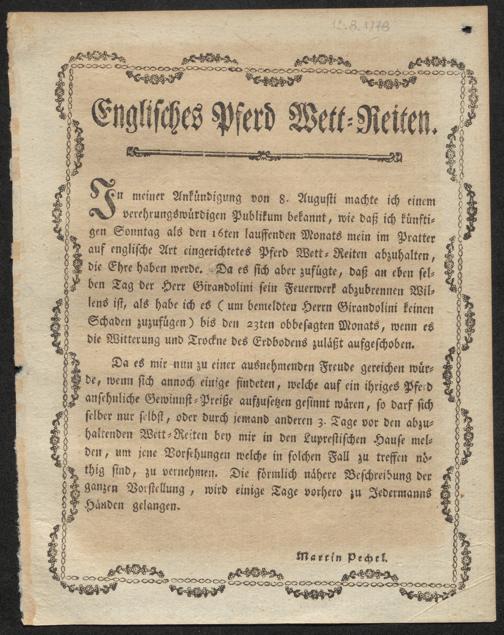 12.8.1778
Englisches Pferd Wett-Reiten.
In meiner Ankündigung von 8. Augusti machte ich einem
verehrungswürdigen Publikum bekannt, wie daß ich künfti-
gen Sonntag als den 16ten lauffenden Monats mein im Pratter
auf englische Art eingerichtetes Pferd Wett-Reiten abzuhalten,
die Ehre haben werde. Da es sich aber zufügte, daß an eben sel-
ben Tag der Herr Girandolini sein Feuerwerk abzubrennen Wil-
lens ist, als habe ich es (um bemeldten Herrn Girandolini keinen
Schaden zuzufügen) bis den 23ten obbesagten Monats, wenn es
die Witterung und Trockne des Erdbodens zuläßt aufgeschoben.
Da es mir nun zu einer ausnehmenden Freude gereichen wür-
de, wenn sich annoch einige findeten, welche auf ein ihriges Pferd
ansehnliche Gewinnst-Preiße aufzusetzen gesinnt wären, so darf sich
selber nur selbst, oder durch jemand anderen 3. Tage vor den abzu-
haltenden Wett-Reiten bey mir in den Luprestischen Hause mel-
den, um jene Vorsehungen welche in solchen Fall zu treffen nö-
thig sind, zu vernehmen. Die förmlich nähere Beschreibung der
ganzen Vorstellung, wird einige Tage vorhero zu Jedermanns
Händen gelangen.
Martin Pechel.